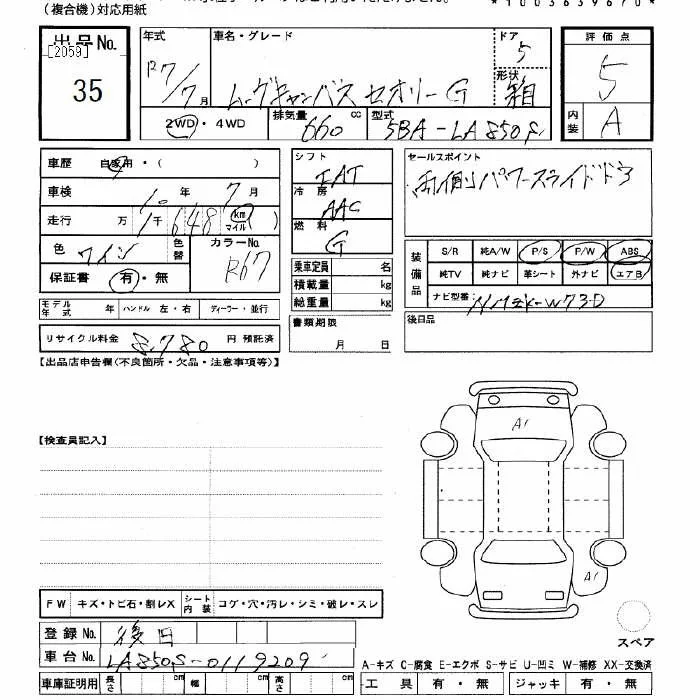 (複合機)対応用紙
*1003639670*
出品No.
[2059]
35
年式
R7/7月
車名・グレード
ムーヴキャンバス セオリーG
ドア
5
形状
箱
2WD・4WD
排気量
660 cc
型式
5BA-LA850S
評価点
5
内装
A
車歴 自家用・( )
車検 10年7月
走行 万1千648 km マイル( )
色 ワイン
色替
カラーNo.
R67
保証書 有・無
シフト
IAT
冷房
AAC
燃料
G
乗車定員 名
積載量 kg
総重量 kg
セールスポイント
両側パワースライドドア
装備品
S/R 純A/W P/S P/W ABS
純TV 純ナビ 革シート 外ナビ エアB
ナビ型番: NMZK-W73D
モデル年式 年 ハンドル 左・右 ディーラー・並行
リサイクル料金 8,780 円 預託済
書類期限
月 日
後日品
【出品店申告欄(不良箇所・欠品・注意事項等)】
【検査員記入】
A1
A1
スペア
FW キズ・トビ石・割レX シート内装 コゲ・穴・汚レ・シミ・破レ・スレ
登録No. 後日
車台No. LA850S-0119209
A-キズ C-腐食 E-エクボ S-サビ U-凹ミ W-補修 XX-交換済
車庫証明用 長さ cm 幅 cm 高さ cm
工具 有・無 ジャッキ 有・無